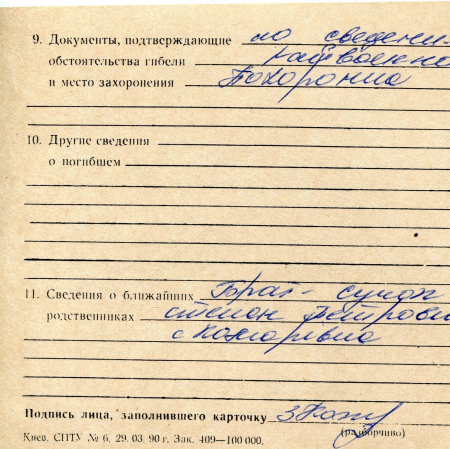 9. Документы, подтверждающие по сведени-
обстоятельства гибели райвоенко
и место захоронения Похоронка
10. Другие сведения
о погибшем
11. Сведения о ближайших Брат-
родственниках степан Петрови
Подпись лица, заполнившего карточку
(разборчиво)
Киев. СПТУ № 6. 29. 03. 90 г. Зак. 409—100 000.